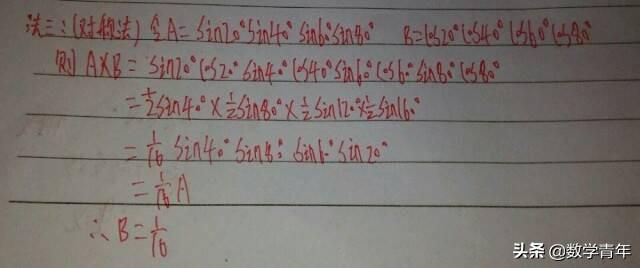 法三：(对称法) 令A=Sin20°Sin40°Sin60°Sin80° B=Cos20°Cos40°Cos60°Cos80°
则 A×B= Sin20°Cos20°Sin40°Cos40°Sin60°Cos60°Sin80°Cos80°
=½Sin40°×½Sin80°×½Sin120°×½Sin160°
=1/16 Sin40°Sin80°Sin60°Sin20°
=1/16 A
∴ B=1/16
头条 @数学青年